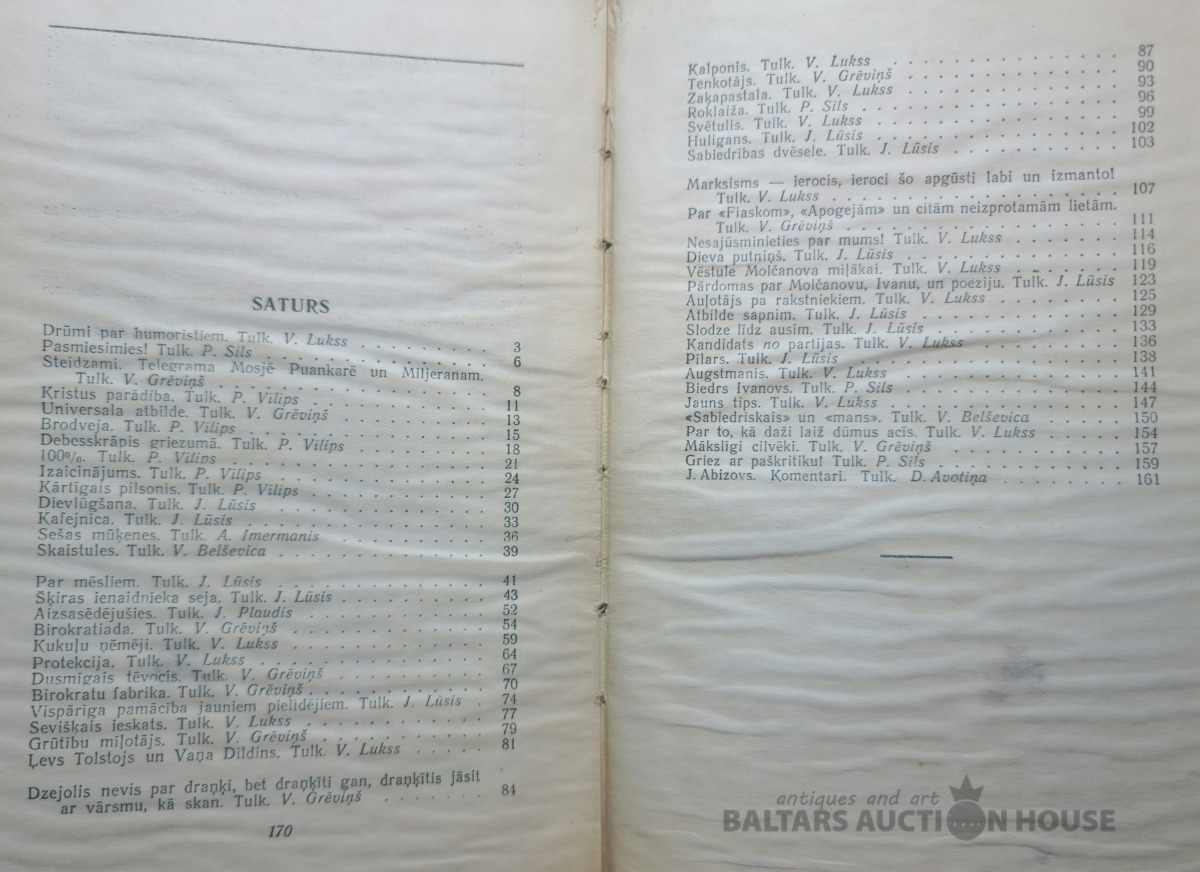 SATURS
Drūmi par humoristiem. Tulk. V. Lukss 3
Pasmiesimies! Tulk. P. Sils 6
Steidzami. Telegrama Mosjē Puankarē un Miljeranam.
Tulk. V. Grēviņš 8
Kristus parādība. Tulk. P. Vilips 11
Universala atbilde. Tulk. V. Grēviņš 13
Brodveja. Tulk. P. Vilips 15
Debesskrāpis griezumā. Tulk. P. Vilips 18
100%. Tulk. P. Vilips 21
Izaicinājums. Tulk. P. Vilips 24
Kārtīgais pilsonis. Tulk. P. Vilips 27
Dievlūgšana. Tulk. J. Lūsis 30
Kafejnīca. Tulk. J. Lūsis 33
Sešas mūķenes. Tulk. A. Imermanis 36
Skaistules. Tulk. V. Belševica 39
Par mēsliem. Tulk. J. Lūsis 41
Šķiras ienaidnieka seja. Tulk. J. Lūsis 43
Aizsasēdējušies. Tulk. J. Plaudis 52
Birokratiada. Tulk. V. Grēviņš 54
Kukuļu ņēmēji. Tulk. V. Lukss 59
Protekcija. Tulk. V. Lukss 64
Dusmīgais tēvocis. Tulk. V. Grēviņš 67
Birokratu fabrika. Tulk. V. Grēviņš 70
Vispārīga pamācība jauniem pielīdējiem. Tulk. J. Lūsis 74
Sevišķais ieskats. Tulk. V. Lukss 77
Grūtību mīļotājs. Tulk. V. Grēviņš 79
Ļevs Tolstojs un Vaņa Dildins. Tulk. V. Lukss 81
Dzejolis nevis par draņķi, bet draņķīti gan, draņķītis jāsit
ar vārsmu, kā skan. Tulk. V. Grēviņš 84
170
Kalponis. Tulk. V. Lukss 87
Tenkotājs. Tulk. V. Grēviņš 90
Zaķapastala. Tulk. V. Lukss 93
Roklaiža. Tulk. P. Sils 96
Svētulis. Tulk. V. Lukss 99
Huligans. Tulk. J. Lūsis 102
Sabiedrības dvēsele. Tulk. J. Lūsis 103
Marksisms — ierocis, ieroci šo apgūsti labi un izmanto!
Tulk. V. Lukss 107
Par «Fiaskom», «Apogejām» un citām neizprotamām lietām.
Tulk. V. Grēviņš 111
Nesajūsminieties par mums! Tulk. V. Lukss 114
Dieva putniņš. Tulk. J. Lūsis 116
Vēstule Molčanova mīļākai. Tulk. V. Lukss 119
Pārdomas par Molčanovu, Ivanu, un poeziju. Tulk. J. Lūsis 123
Auļotājs pa rakstniekiem. Tulk. V. Lukss 125
Atbilde sapnim. Tulk. J. Lūsis 129
Slodze līdz ausīm. Tulk. J. Lūsis 133
Kandidats no partijas. Tulk. V. Lukss 136
Pīlars. Tulk. J. Lūsis 138
Augstmanis. Tulk. V. Lukss 141
Biedrs Ivanovs. Tulk. P. Sils 144
Jauns tips. Tulk. V. Lukss 147
«Sabiedriskais» un «mans». Tulk. V. Belševica 150
Par to, kā daži laiž dūmus acīs. Tulk. V. Lukss 154
Mākslīgi cilvēki. Tulk. V. Grēviņš 157
Griez ar paškritiku! Tulk. P. Sils 159
J. Abizovs. Komentari. Tulk. D. Avotiņa 161
antiques and art
BALTARS AUCTION HOUSE